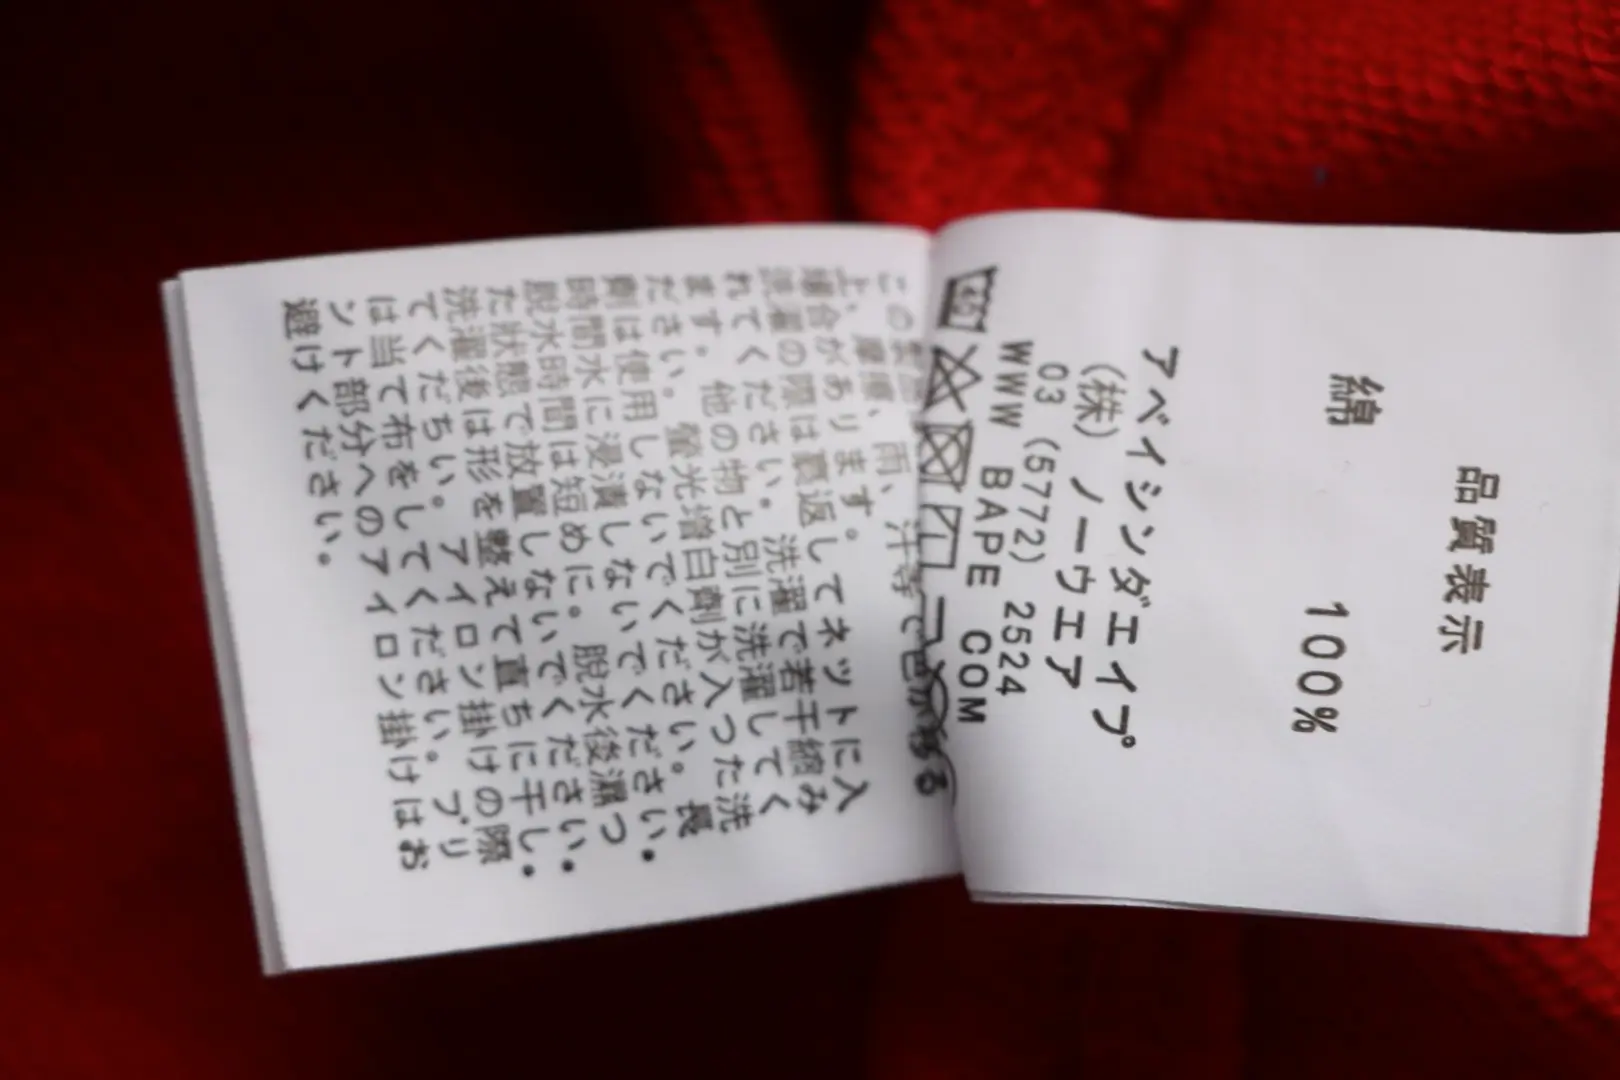 品質表示
綿 100%
アベイシングエイプ
(株) ノーウエア
03 (5772) 2524
WWW BAPE COM
雨、汗等で色が移る
場合があります。
洗濯の際は裏返してネットに入
れてください。洗濯で若干縮み
ます。他の物と別に洗濯してく
ださい。蛍光増白剤が入った洗
剤は使用しないでください。長
時間水に浸漬しないでください。
脱水時間は短めに。脱水後濡っ
た状態で放置しないでください。
洗濯後は形を整えて直ちに干し
てくだちい。アイロン掛けの際
は当て布をしてください。プリ
ント部分へのアイロン掛けはお
避けください。